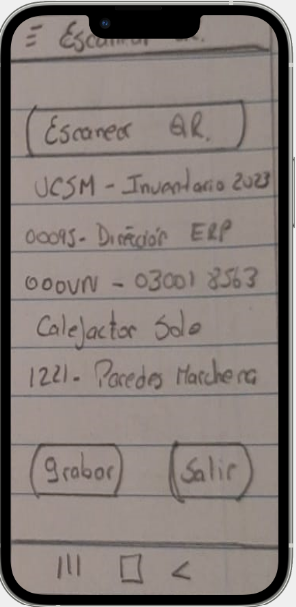 Escanear QR.
Escanear QR.
UCSM - Inventario 2023
00095 - Dirección ERP
000VN - 03001 8563
Calefactor Solo
1221 - Paredes Marchena
grabar
Salir